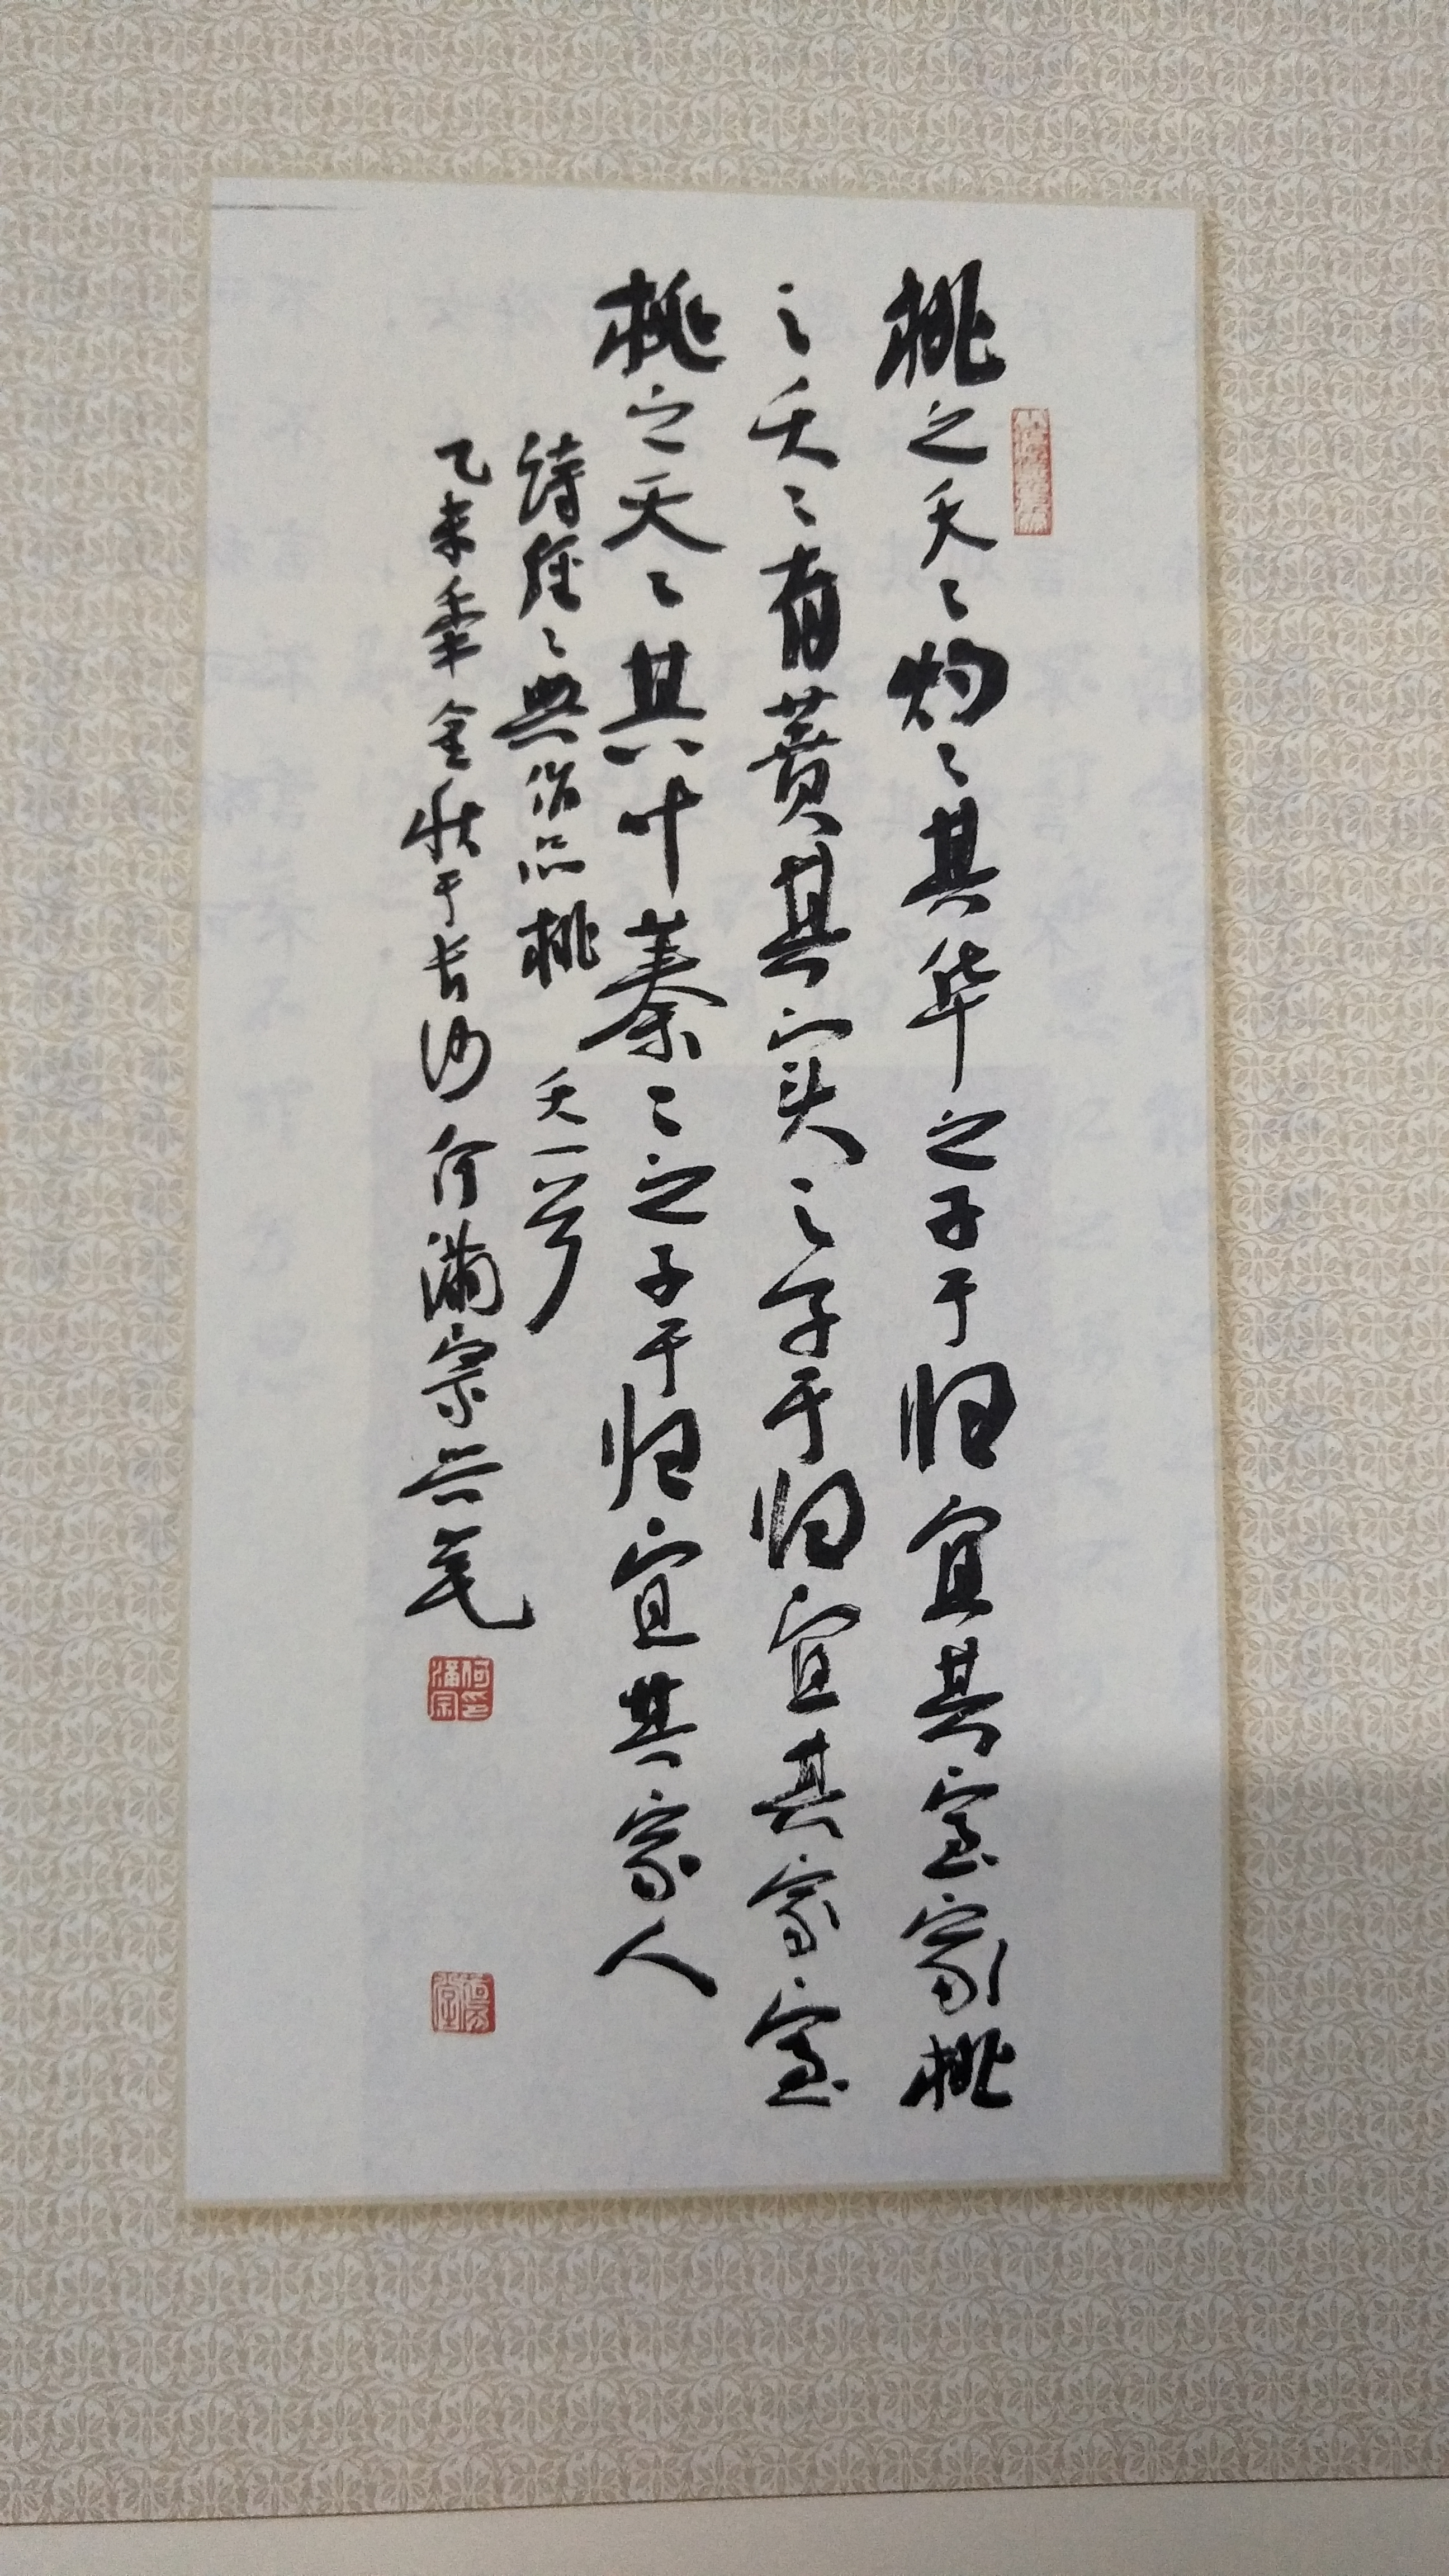 桃之夭〻灼〻其华之子于归宜其室家桃
之夭〻有蕡其实之子于归宜其家室
桃之夭〻其叶蓁〻之子于归宜其家人
诗经〻典作品桃夭一首
乙未年金秋于长沙 何满宗 笔
何满宗印